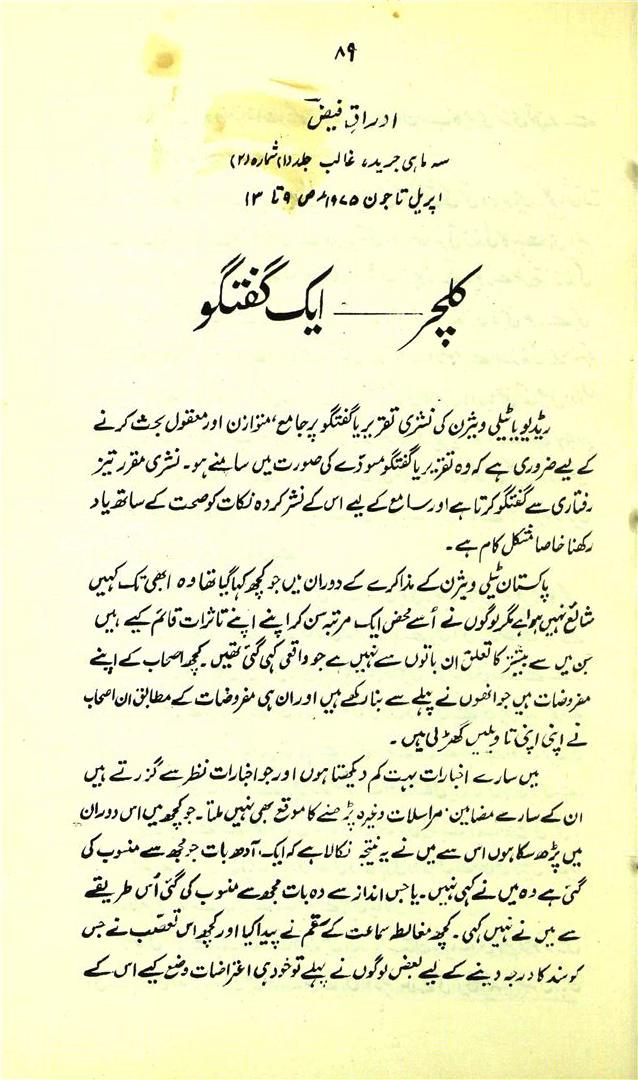 ۸۹
اوراقِ فیض
سہ ماہی جریدہ، غالب جلد (۱) شمارہ (۲)
اپریل تا جون ۱۹۷۵ء ص ۹ تا ۱۳
کلچر ——— ایک گفتگو
ریڈیو یا ٹیلی ویژن کی نشری تقریر یا گفتگو پر جامع، متوازن اور معقول بحث کرنے
کے لیے ضروری ہے کہ وہ تقریر یا گفتگو مسودے کی صورت میں سامنے ہو۔ نشری مقرر تیز
رفتاری سے گفتگو کرتا ہے اور سامع کے لیے اس کے نشر کردہ نکات کو صحت کے ساتھ یاد
رکھنا خاصا مشکل کام ہے۔
پاکستان ٹیلی ویژن کے مذاکرے کے دوران میں جو کچھ کہا گیا تھا وہ ابھی تک کہیں
شائع نہیں ہوا ہے مگر لوگوں نے اُسے محض ایک مرتبہ سن کر اپنے اپنے تاثرات قائم کیے ہیں
جن میں سے بیشتر کا تعلق ان باتوں سے نہیں ہے جو واقعی کہی گئی تھیں۔ کچھ اصحاب کے اپنے
مفروضات ہیں جو انھوں نے پہلے سے بنا رکھے ہیں اور ان ہی مفروضات کے مطابق ان اصحاب
نے اپنی اپنی تاویلیں گھڑلی ہیں۔
میں سارے اخبارات بہت کم دیکھتا ہوں اور جو اخبارات نظر سے گزرتے ہیں
ان کے سارے مضامین، مراسلات وغیرہ پڑھنے کا موقع بھی نہیں ملتا۔ جو کچھ میں اس دوران
میں پڑھ سکا ہوں اس سے میں نے یہ نتیجہ نکالا ہے کہ ایک آدھ بات جو مجھ سے منسوب کی
گئی ہے وہ میں نے کہی نہیں۔ یا جس انداز سے وہ بات مجھ سے منسوب کی گئی اُس طریقے
سے میں نے نہیں کہی۔ کچھ مغالطہ سماعت کے سقم نے پیدا کیا اور کچھ اس تعصّب نے جس
کو سند کا درجہ دینے کے لیے بعض لوگوں نے پہلے تو خود ہی اعتراضات وضع کیے اس کے